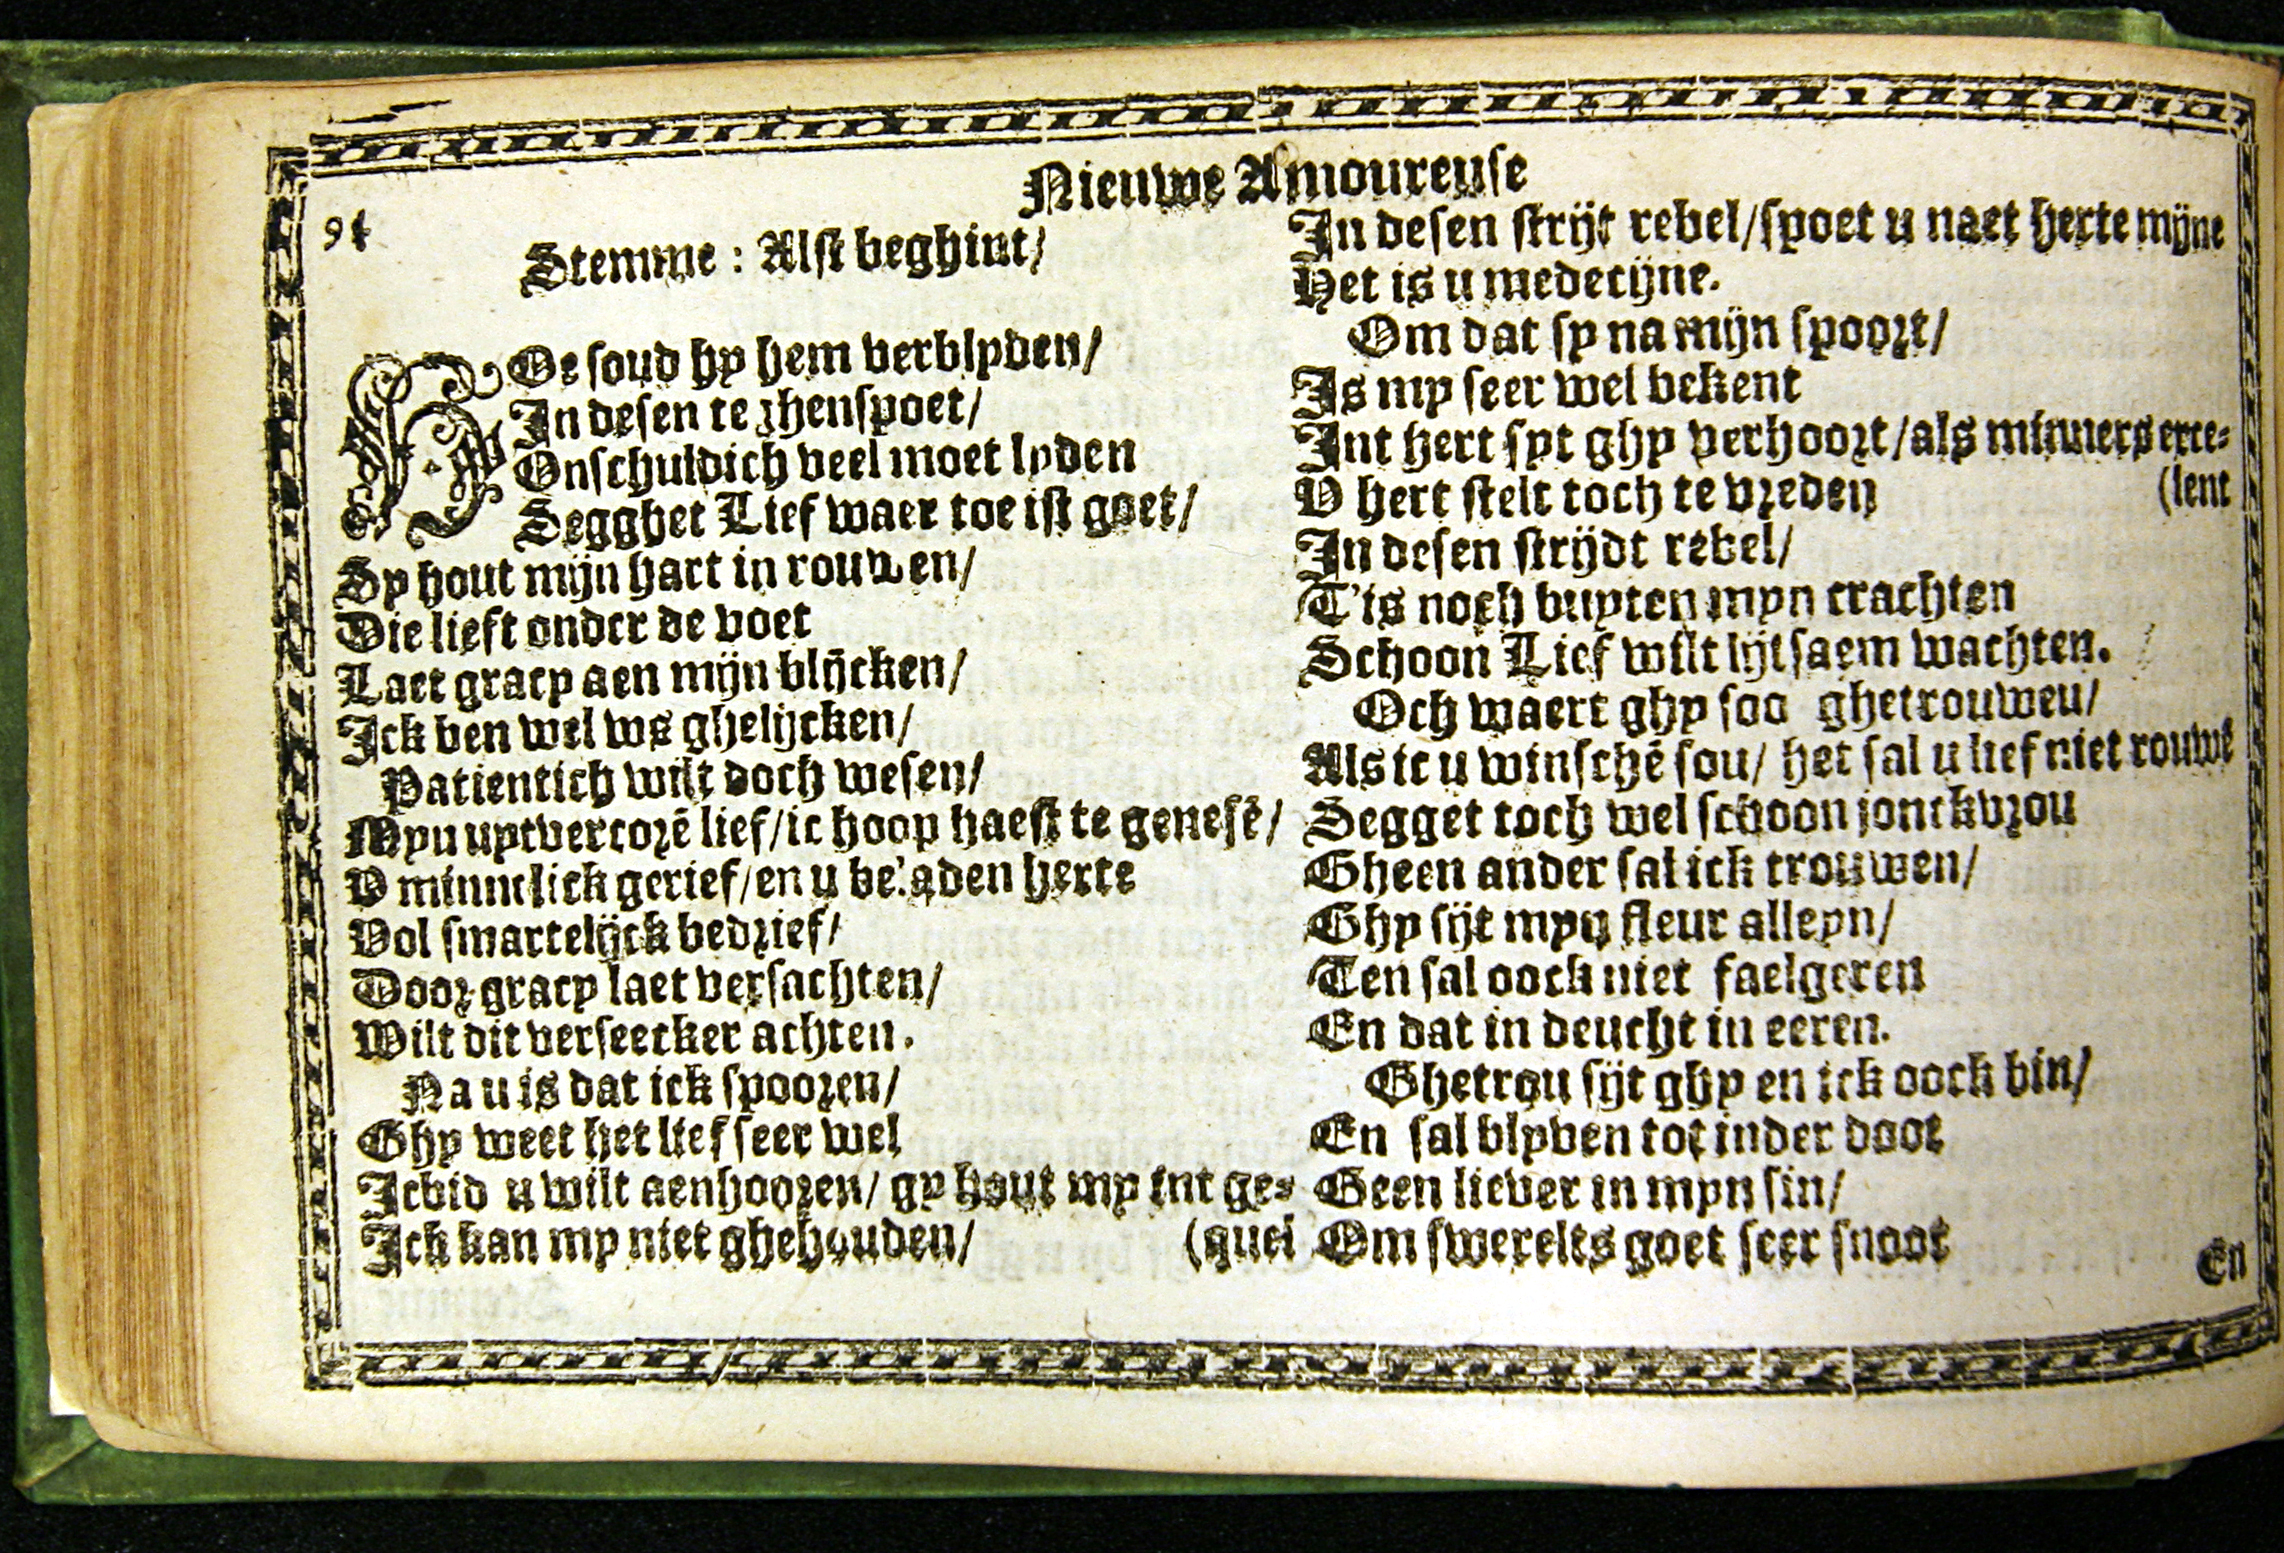 Nieuwe Amoureuse
94
Stemme: Alst beghint/
HOe soud hy hem verblyden/
In desen te zhenspoet/
Onschuldich veel moet lyden
Segghet Lief waer toe ist goet/
Sy hout mijn hart in rouwen/
Die lieft onder de voet
Laet gracy aen mijn blijcken/
Ick ben wel ws ghelijcken/
Patientich wilt doch wesen/
Myn uytvercorē lief/ic hoop haest te genesē/
V minnelick gerief/en u beladen herte
Vol smartelijck bedrief/
Door gracy laet versachten/
Wilt dit verseecker achten.
Na u is dat ick spooren/
Ghy weet het lief seer wel
Icbid u wilt aenhooren/ gy hout my int ge-
Ick kan my niet ghehouden/ (quel
In desen strijt rebel/spoet u naet herte mijne
Het is u medecijne.
Om dat sy na mijn spoort/
Is my seer wel bekent
Int hert syt ghy verhoort/als minners exce-
V hert stelt toch te vreden (lent
In desen strijdt rebel/
T'is noch buyten myn crachten
Schoon Lief wilt lijtsaem wachten.
Och waert ghy soo ghetrouweu/
Als ic u winschē sou/ het sal u lief niet rouwē
Segget toch wel schoon jonckvrou
Gheen ander sal ick trouwen/
Ghy sijt myn fleur alleyn/
Ten sal oock niet faelgeren
En dat in deucht in eeren.
Ghetrou sijt ghy en ick oock bin/
En sal blyven tot inder doot
Geen liever in myn sin/
Om swerelts goet seer snoot
En